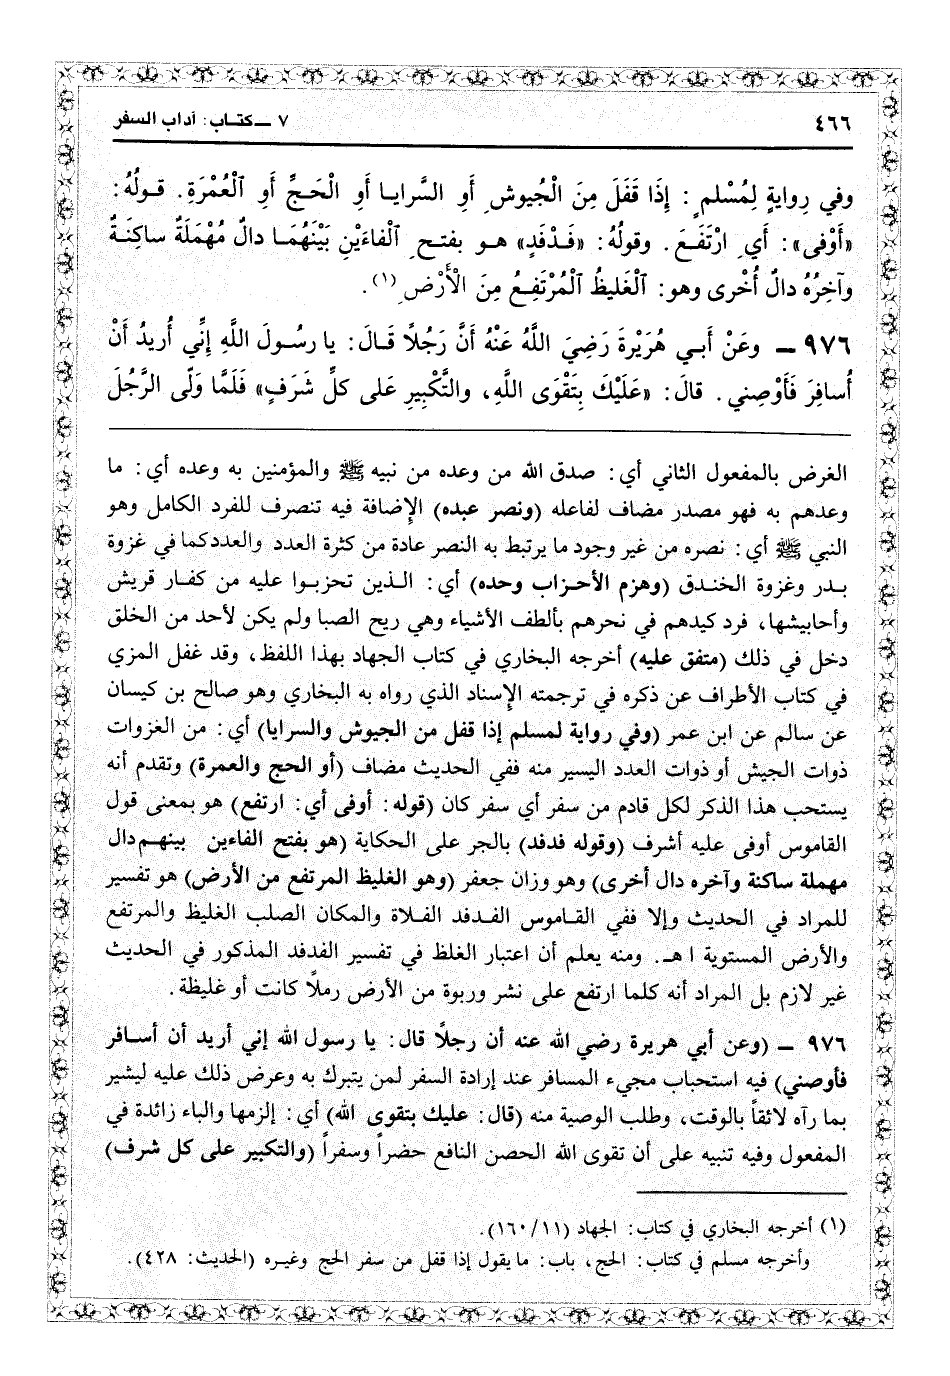 ٤٦٦ ٧ ـ كتـاب: آداب السفر
وفي رِوايةٍ لِمُسْلمٍ: إِذَا قَفَلَ مِنَ الْجُيوشِ أَوِ السَّرايـا أَوِ الْحَجِّ أَوِ ٱلْعُمْرَةِ. قـولُهُ:
«أَوْفى»: أَيِ ارْتَفَـعَ. وقولُهُ: «فَـدْفَدٍ» هـو بفتحِ ٱلْفاءَيْنِ بَيْنَهُمَا دالٌ مُهْمَلَةٌ ساكِنَـةٌ
وآخِرُهُ دالٌ أُخْرى وهو: ٱلْغَليظُ ٱلْمُرْتَفِـعُ مِنَ الْأَرْضِ (١).
٩٧٦ ـ وعَنْ أَبـي هُرَيْرَةَ رَضِيَ اللَّهُ عَنْهُ أَنَّ رَجُلًا قَـالَ: يا رسُـولَ اللَّهِ إِنِّي أُرِيدُ أَنْ
أُسافِرَ فَأَوْصِني. قالَ: «عَلَيْكَ بِتَقْوَى اللَّهِ، والتَّكْبِيرِ عَلى كلِّ شَرَفٍ» فَلَمَّا وَلَّى الرَّجُلُ
الغرض بالمفعول الثاني أي: صدق الله من وعده من نبيه ﷺ والمؤمنين به وعده أي: ما
وعدهم به فهو مصدر مضاف لفاعله (ونصر عبده) الإِضافة فيه تنصرف للفرد الكامل وهو
النبي ﷺ أي: نصره من غير وجود ما يرتبط به النصر عادة من كثرة العدد والعدد كما في غزوة
بـدر وغزوة الخنـدق (وهزم الأحـزاب وحده) أي: الـذين تحزبـوا عليه من كفـار قريش
وأحابيشها، فرد كيدهم في نحرهم بألطف الأشياء وهي ريح الصبا ولم يكن لأحد من الخلق
دخل في ذلك (متفق عليه) أخرجه البخاري في كتاب الجهاد بهذا اللفظ، وقد غفل المزي
في كتاب الأطراف عن ذكره في ترجمته الإِسناد الذي رواه به البخاري وهو صالح بن كيسان
عن سالم عن ابن عمر (وفي رواية لمسلم إذا قفل من الجيوش والسرايا) أي: من الغزوات
ذوات الجيش أو ذوات العدد اليسير منه ففي الحديث مضاف (أو الحج والعمرة) وتقدم أنه
يستحب هذا الذكر لكل قادم من سفر أي سفر كان (قوله: أوفى أي: ارتفع) هو بمعنى قول
القاموس أوفى عليه أشرف (وقوله فدفد) بالجر على الحكاية (هو بفتح الفاءين بينهـم دال
مهملة ساكنة وآخره دال أخرى) وهو وزان جعفر (وهو الغليظ المرتفع من الأرض) هو تفسير
للمراد في الحديث وإلا ففي القـاموس الفـدفد الفـلاة والمكان الصلب الغليظ والمرتفع
والأرض المستوية ا هـ. ومنه يعلم أن اعتبار الغلظ في تفسير الفدفد المذكور في الحديث
غير لازم بل المراد أنه كلما ارتفع على نشر وربوة من الأرض رملاً كانت أو غليظة.
٩٧٦ ـ (وعن أبي هريرة رضي الله عنه أن رجلًا قال: يا رسول الله إني أريد أن أسـافر
فأوصني) فيه استحباب مجيء المسافر عند إرادة السفر لمن يتبرك به وعرض ذلك عليه ليشير
بما رآه لائقاً بالوقت، وطلب الوصية منه (قال: عليك بتقوى الله) أي: إلزمها والباء زائدة في
المفعول وفيه تنبيه على أن تقوى الله الحصن النافع حضراً وسفراً (والتكبير على كل شرف)
(١) أخرجه البخاري في كتاب: الجهاد (١١/١٦٠).
وأخرجه مسلم في كتاب: الحج، باب: ما يقول إذا قفل من سفر الحج وغيـره (الحديث: ٤٢٨).